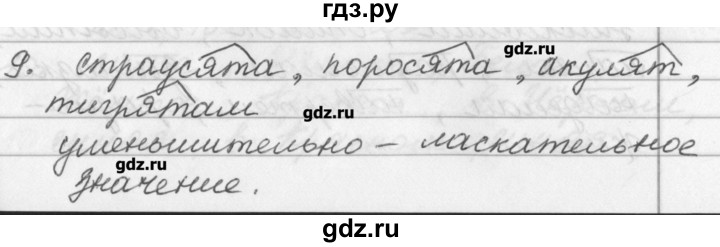 гдз.ру
9. страусята, поросята, акулят,
gdz.ru
тигрятам
gdz.ru
уменьшительно – ласкательное
gdz.ru
значение.
gdz.ru